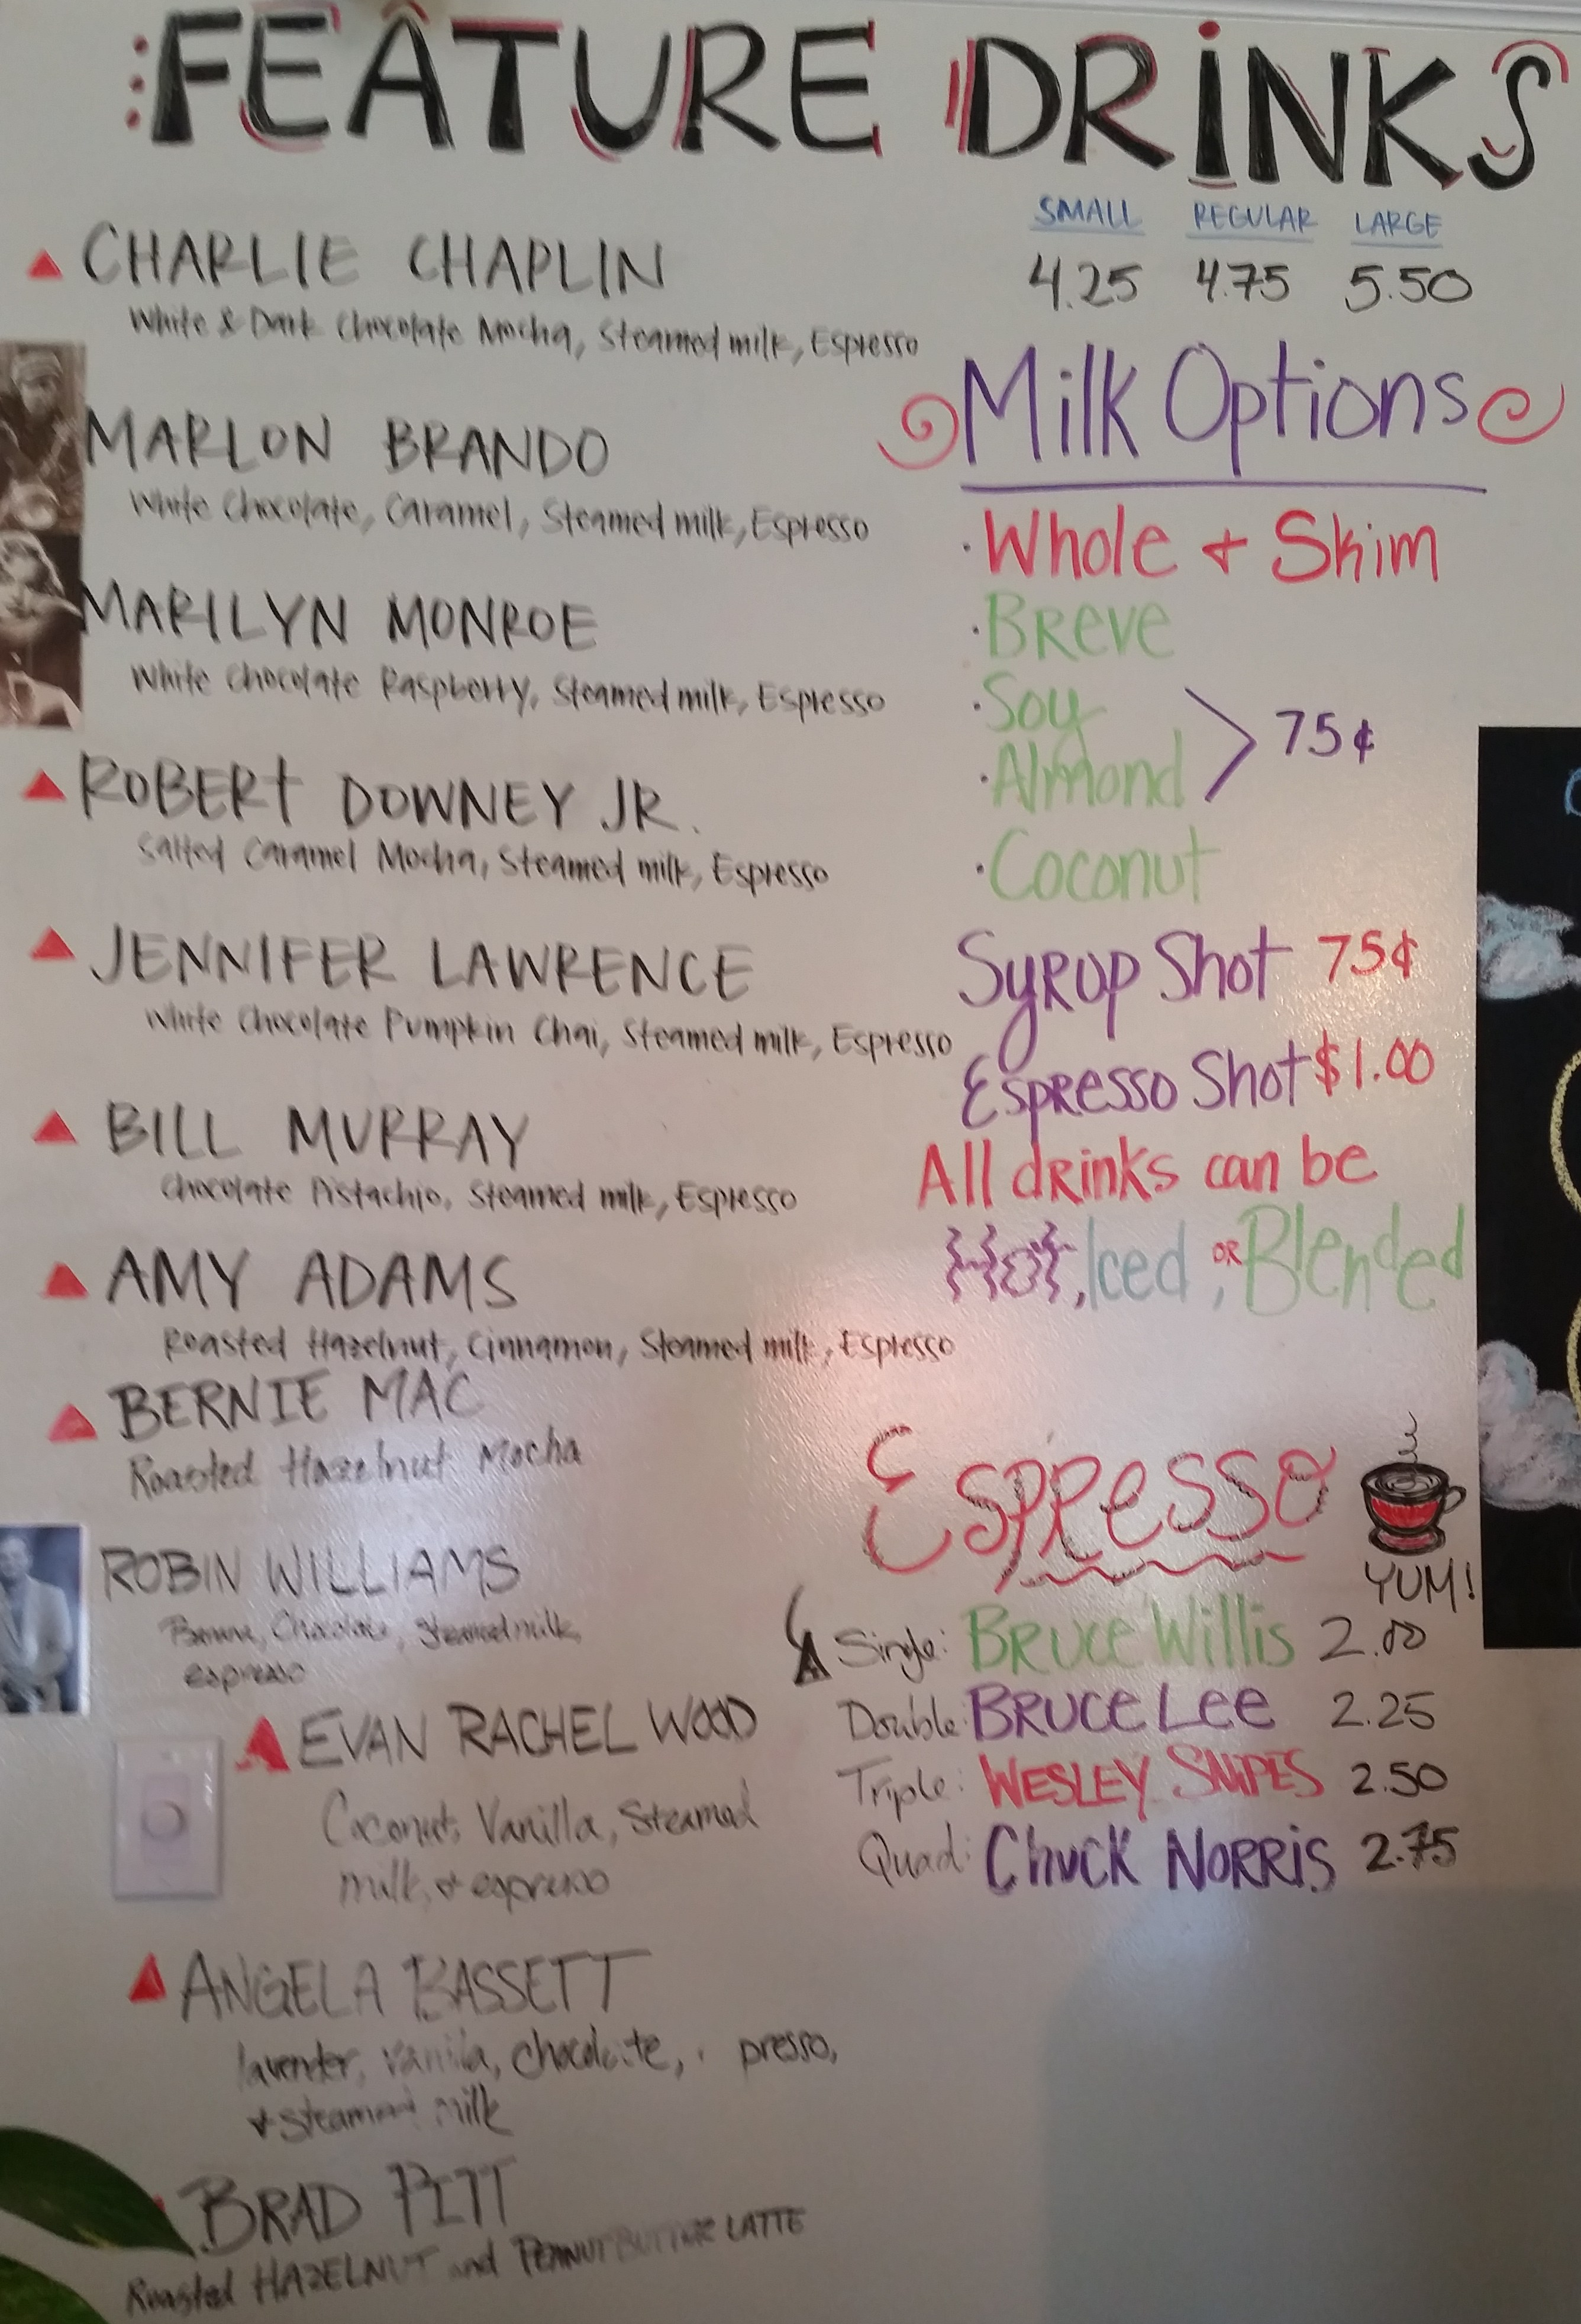 FEATURE DRINKS
SMALL REGULAR LARGE
4.25 4.75 5.50
CHARLIE CHAPLIN
White & Dark Chocolate Mocha, Steamed milk, Espresso
MARLON BRANDO
White Chocolate, Caramel, Steamed milk, Espresso
MARILYN MONROE
White Chocolate Raspberry, Steamed milk, Espresso
ROBERT DOWNEY JR.
Salted Caramel Mocha, Steamed milk, Espresso
JENNIFER LAWRENCE
White Chocolate Pumpkin Chai, Steamed milk, Espresso
BILL MURRAY
Chocolate Pistachio, Steamed milk, Espresso
AMY ADAMS
Roasted Hazelnut, Cinnamon, Steamed milk, Espresso
BERNIE MAC
Roasted Hazelnut Mocha
ROBIN WILLIAMS
Chocolate, Steamed milk,
espresso
EVAN RACHEL WOOD
Coconut, Vanilla, Steamed
milk, & espresso
ANGELA BASSETT
lavender, vanilla, chocolate, presso,
& steamed milk
BRAD PITT
Roasted HAZELNUT and PEANUT BUTTER LATTE
Milk Options
· Whole + Skim
· Breve
· Soy
· Almond
75¢
· Coconut
Syrup Shot 75¢
Espresso Shot $1.00
All drinks can be
Hot, Iced, OR Blended
Espresso
YUM!
Single: Bruce Willis 2.00
Double: Bruce Lee 2.25
Triple: WESLEY SNIPES 2.50
Quad: Chuck Norris 2.75